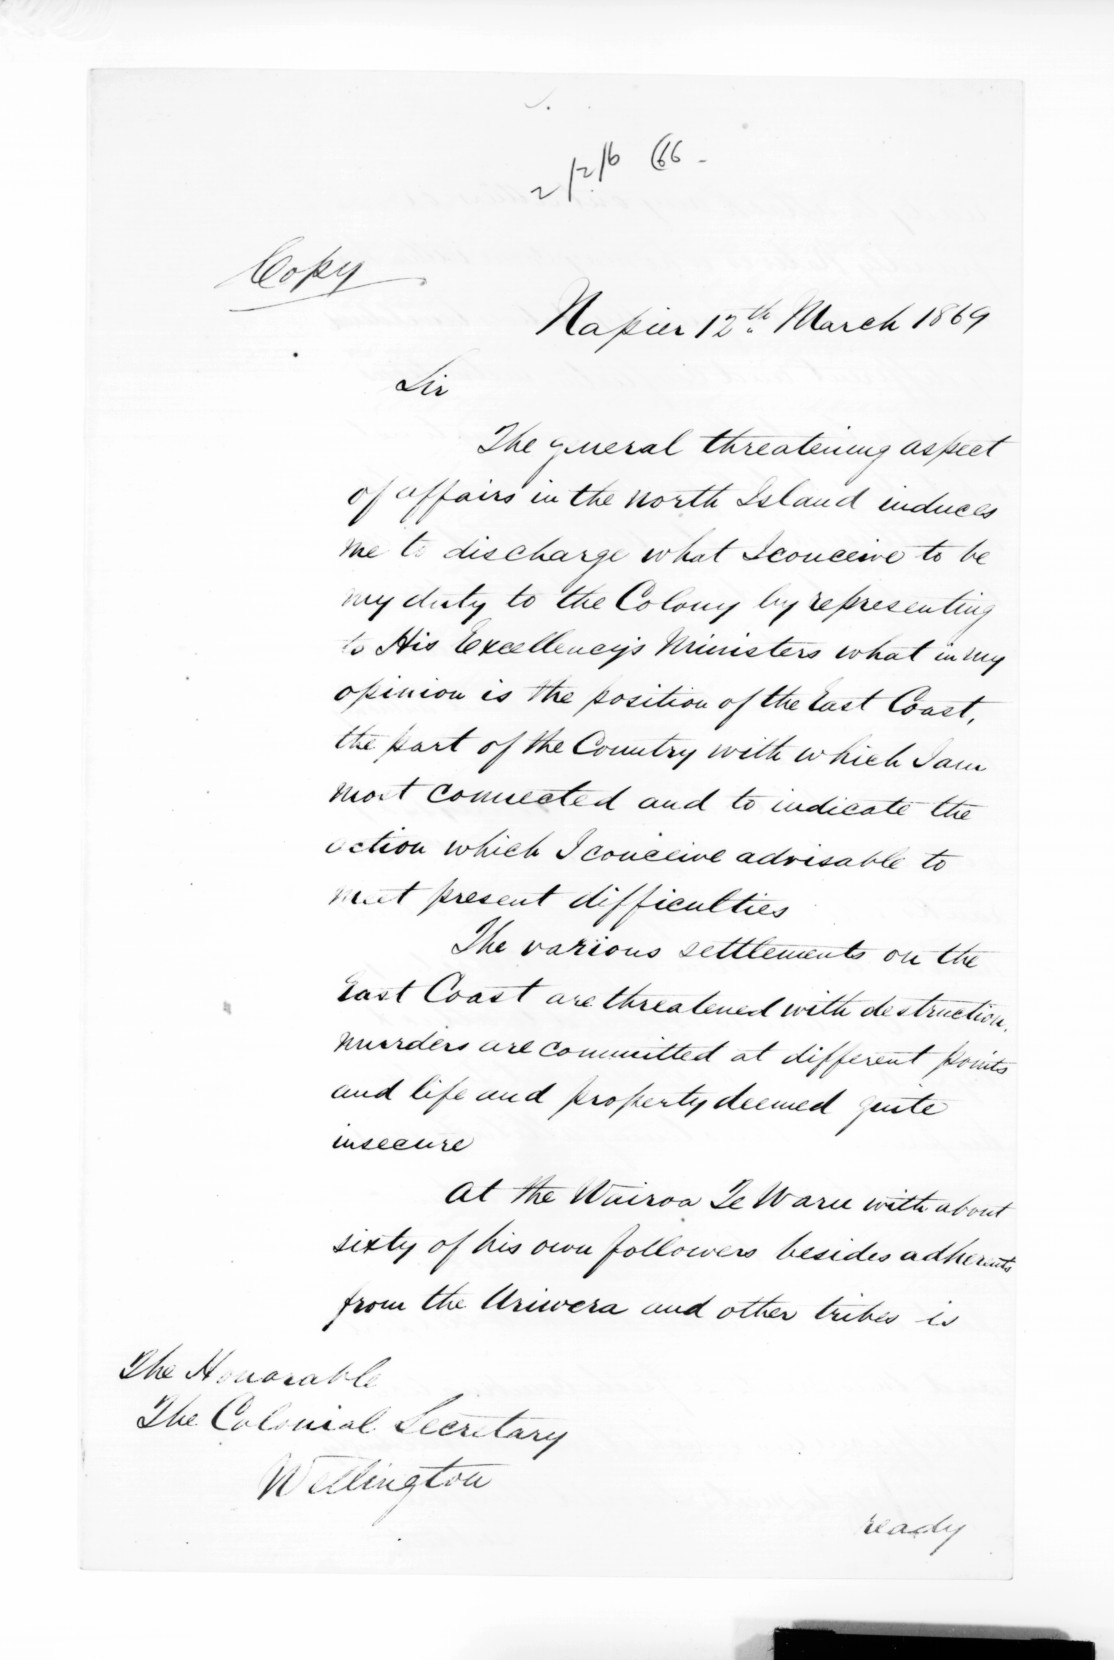 Copy
Napier 12th March 1869
Sir
The general threatening aspect
of affairs in the North Island induces
me to discharge what I conceive to be
my duty to the Colony by representing
to His Excellency's Ministers what in my
opinion is the position of the East Coast,
the part of the Country with which I am
most connected and to indicate the
action which I conceive advisable to
meet present difficulties
The various settlements on the
East Coast are threatened with destruction,
murders are committed at different points
and life and property deemed quite
insecure
At the Wairoa Te Waru with about
sixty of his own followers besides adherents
from the Uriwera and other tribes is
The Honorable
The Colonial Secretary
Wellington
ready